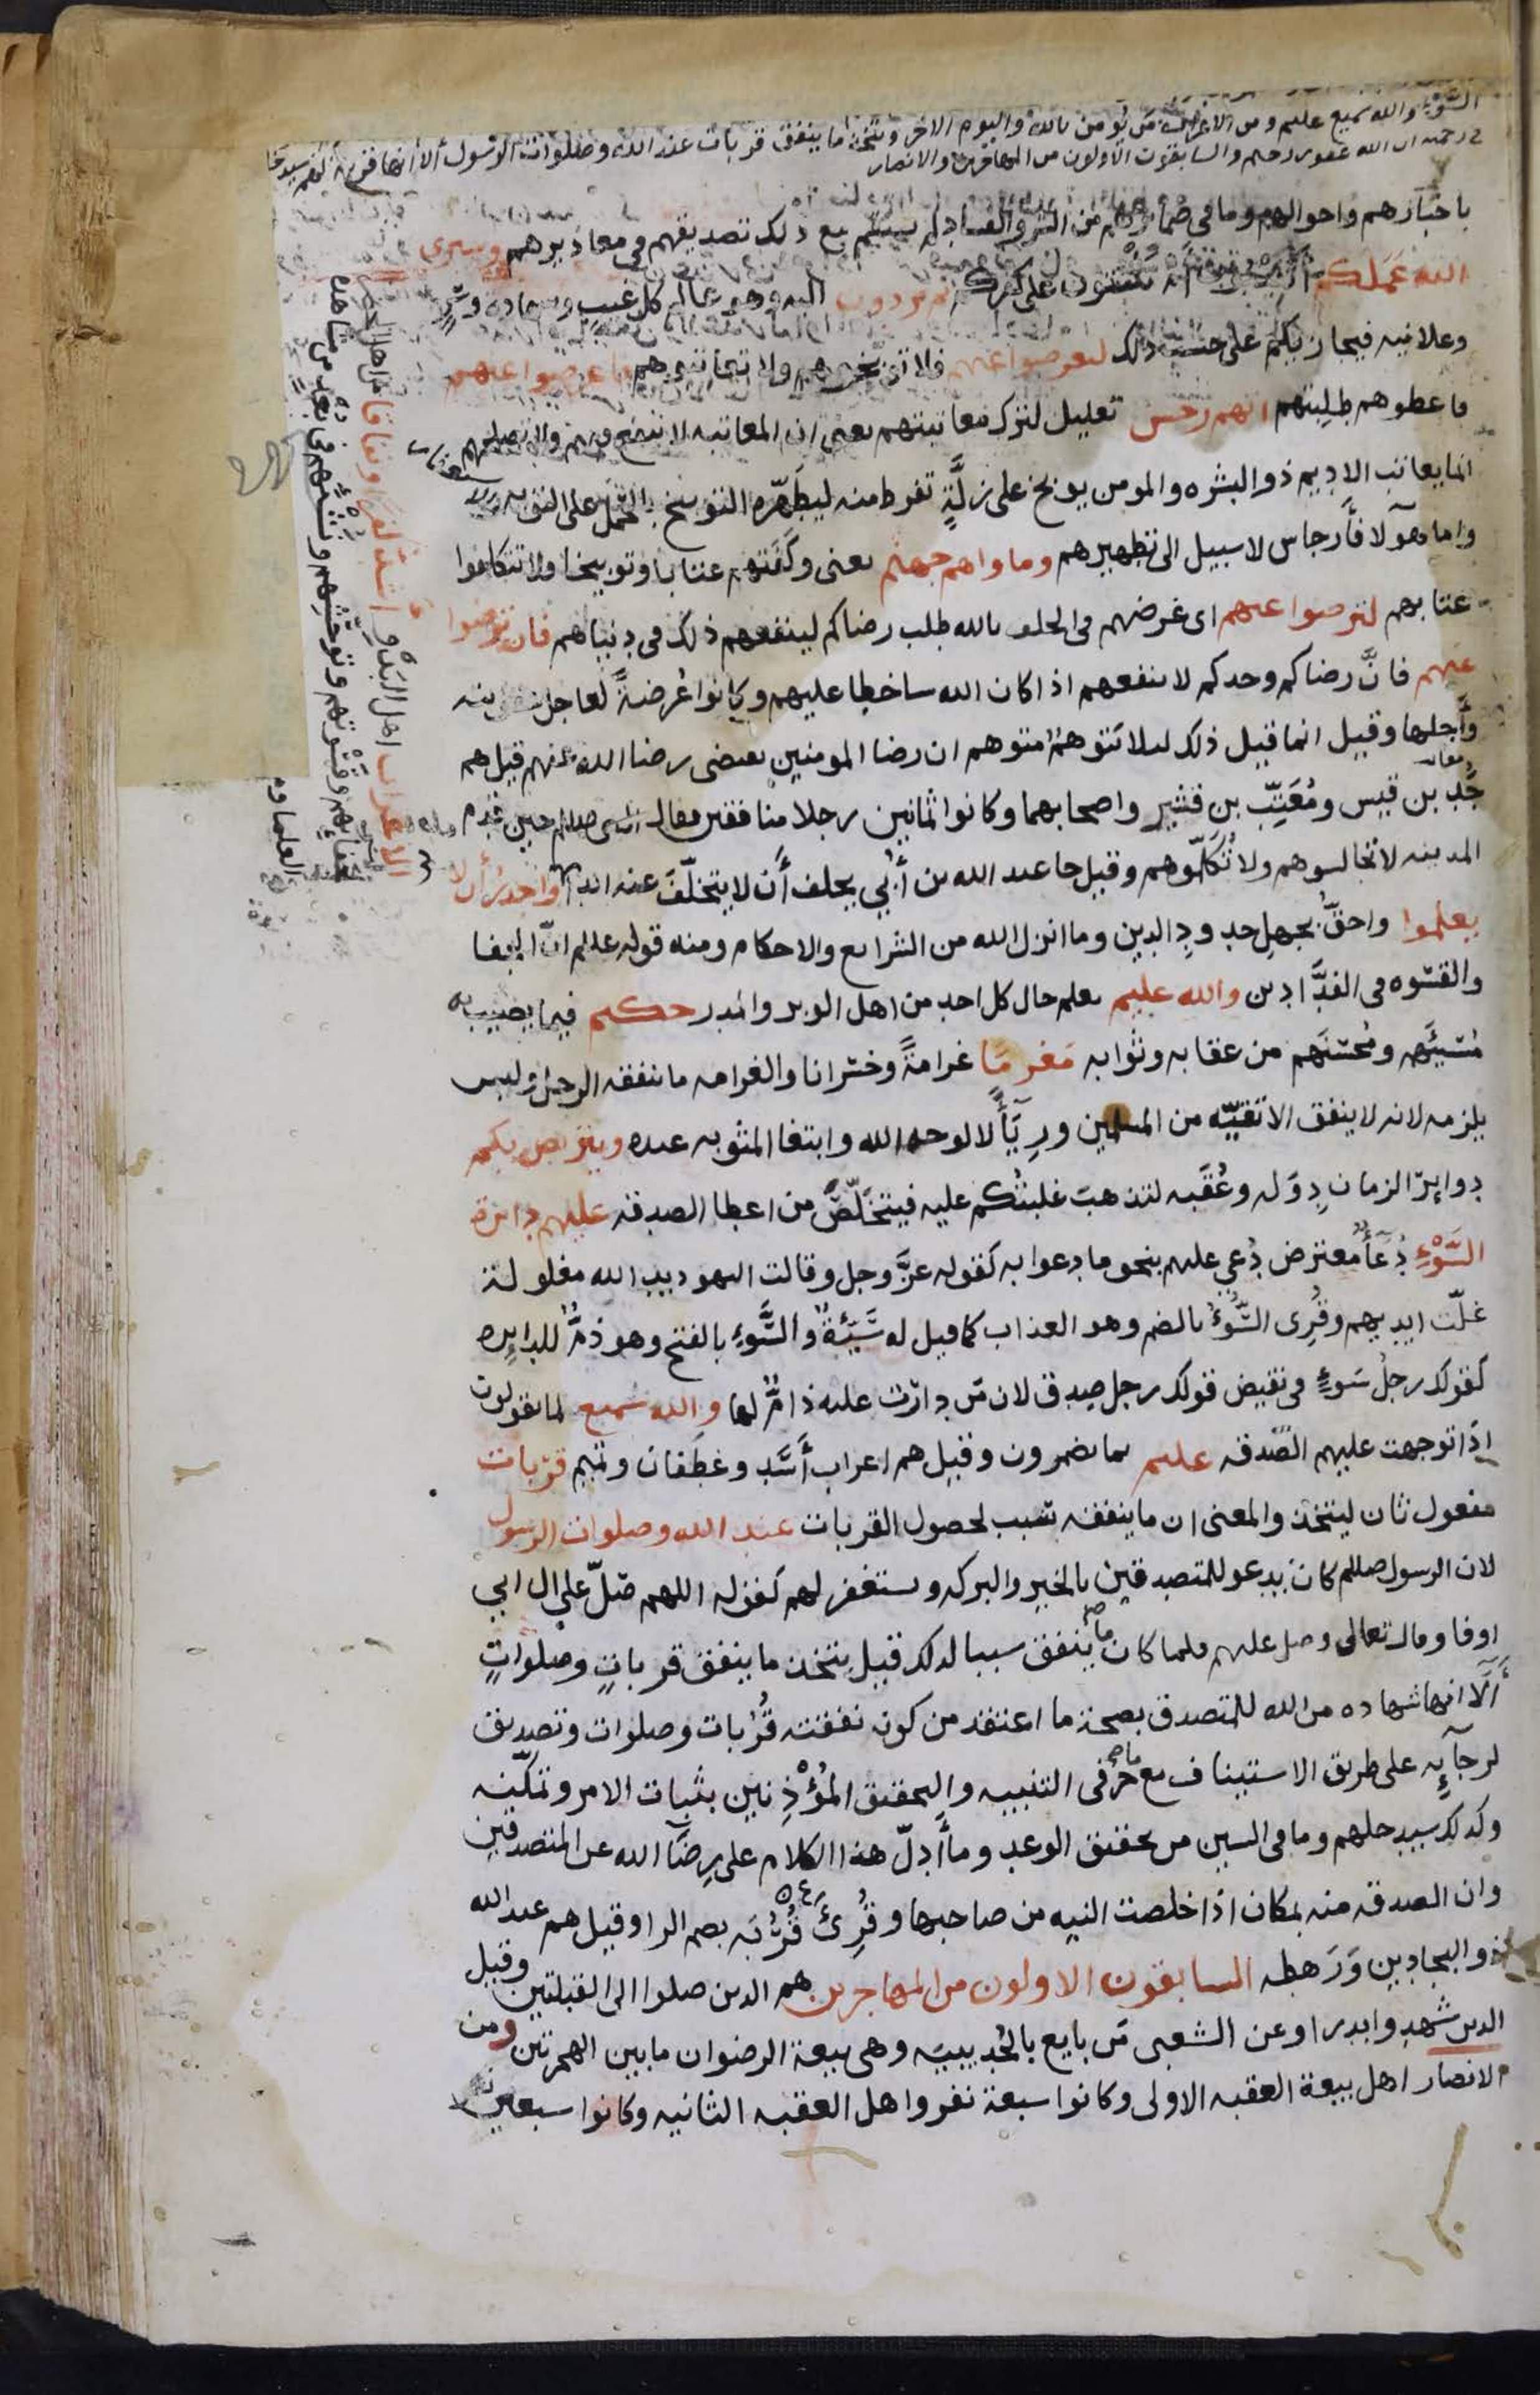 السَّوْءِ والله سميع عليم ومن الاعراب من يُومن بالله واليوم الاخر ويتخذ ما ينفق قربات عند الله وصلوات الرسول ألا انها قربة لهم سيدخلهم
في رحمته ان الله غفور رحيم والسابقون الاولون من المهاجرين والانصار
باخبارهم واحوالهم وما في ضمائرهم من الشر والفساد لم يستقم مع ذلك تصديقهم في معاذيرهم وسيرى
الله عَمَلكم أتنيبون ام تثبتون على كفركم ثم تردون اليه وهو عالم كل غيبٍ وشهادة وسِرٍّ
وعلانيه فيجازيكم على حسب ذلك لتعرضوا عنهم فلا توبخوهم ولا تعاتبوهم فاعرضوا عنهم
فاعطوهم طلبتهم انهم رجس تعليل لترك معاتبتهم يعنى ان المعاتبه لا تنفع فيهم ولا تصلحهم
انما يعاتب الاديم ذو البشره والمومن يوبخ على زلَّةٍ تفرط منه ليطهّره التوبيخ بالحمل على التوبه
واما هولآ فأرجاس لا سبيل الى تطهيرهم وماواهم جهنم يعنى وكفتهم عتابا وتوبيخا ولا تتكلفوا
عتابهم لترضوا عنهم اى غرضهم فى الحلف بالله طلب رضاكم لينفعهم ذلك فى دنياهم فان ترضوا
عنهم فانَّ رضاكم وحدكم لا ينفعهم اذا كان الله ساخطا عليهم وكانوا عُرضةً لعاجل عقوبته
وآجلها وقيل انما قيل ذلك لئلا يتوهم متوهم ان رضا المومنين يقتضى رضا الله عنهم قيل هم
جَدّ بن قيس ومُعَتِّب بن قشير واصحابهما وكانوا ثمانين رجلا منافقين فقال النبى صللم حين قدم
المدينه لا تجالسوهم ولا تُكَلِّموهم وقيل جا عبد الله بن أُبَيّ يحلف أن لا يتخلّفَ عنه ابدا واجدرُ ألا
يعلموا واحقُّ بجهلِ حدودِ الدين وما انزل الله من الشرايع والاحكام ومنه قوله عللم انّ الجفا
والقسوه فى الفدَّادين والله عليم يعلم حال كل احد من اهل الوبر والمدر حكيم فيما يصيب به
مُسيئَهم ومُحسنَهم من عقابه وثوابه مَغرمًا غرامةً وخسرانا والغرامه ما ينفقه الرجل وليس
يلزمه لانه لا ينفق الا تقيّه من المسلمين ورِيآءً لا لوجه الله وابتغا المثوبه عنده ويتربص بكم
دوايرَ الزمان دِوَله وعُقَبه لتذهبَ غلبتُكم عليه فيتخَلَّصَ من اعطا الصدقه عليهم دائرة
السَّوْءِ دُعَآءٌ معترض دُعي عليهم بنحو ما دعوا به كقوله عزّ وجل وقالت اليهود يد الله مغلولة
غلّت ايديهم وقُرِى السُّوُءُ بالضم وهو العذاب كما قيل له سَيّئةٌ والسَّوءِ بالفتح وهو ذمٌّ للدايره
كقولك رجلُ سَوءٍ فى نقيض قولك رجل صدق لان مَن دارَت عليه ذامٌّ لها والله سميع لما يقولون
اذا توجهت عليهم الصّدقه عليم بما يضمرون وقيل هم اعراب أسَدٍ وغطفان وتميم قربات
مفعول ثان ليتخذ والمعنى ان ما ينفقه سبب لحصول القربات عند الله وصلوات الرسول
لان الرسول صللم كان يدعو للمتصدقين بالخير والبركه ويستغفر لهم كقوله اللهم صلّ على ال ابي
اوفا وقال تعالى وصل عليهم فلما كان ما ينفق سببا لذلك قيل يتخذ ما ينفق قرباتٍ وصلواتٍ
ألآ انها شهاده من الله للمتصدق بصحة ما اعتقد من كون نفقته قُرُبات وصلوات وتصديق
لرجآيِه على طريق الاستيناف مع حرفى التنبيه والتحقيق المُؤْذِنَين بثبات الامر وتمكّنه
وكذلك سيدخلهم وما فى السين من تحقيق الوعد وما أدلّ هذا الكلام على رِضآ الله عن المتصدقين
وان الصدقه منه بمكان اذا خلصت النيه من صاحبها وقُرِئَ قُرُبَه بضم الرا وقيل هم عبد الله
ذو البجادين وَرَهطه السابقون الاولون من المهاجرين هم الذين صلوا الى القبلتين وقيل
الذين شهدوا بدرا وعن الشعبى مَن بايع بالحُديبيَه وهى بيعة الرضوان ما بين الهجرتين ومن
الانصار اهل بيعة العقبه الاولى وكانوا سبعة نفر واهل العقبه الثانيه وكانوا سبعين
الاعراب اهل البَدْوِ أشدُّ كفرًا ونفاقا من اهل الحضر
لجفآئِهم وقَسْوتهم وتوحّشِهم ونَشئهم فى بُعدٍ من مشاهدة
العلما